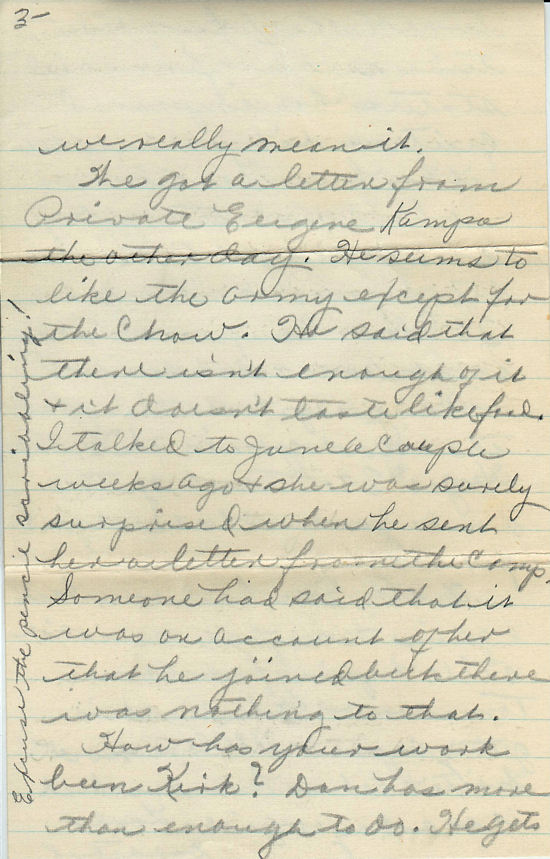 2-
we really mean it.
We got a letter from
Private Eugene Kampa
the other day. He seems to
like the army except for
the Chow. He said that
there isn't enough of it
& it doesn't taste like food.
I talked to June a couple
weeks ago & she was surely
surprised when he sent
her a letter from the camp.
Someone had said that it
was on account of her
that he joined but there
was nothing to that.
How has your work
been Kirk? Don has more
than enough to do. He gets
Excuse the pencil scribbling!